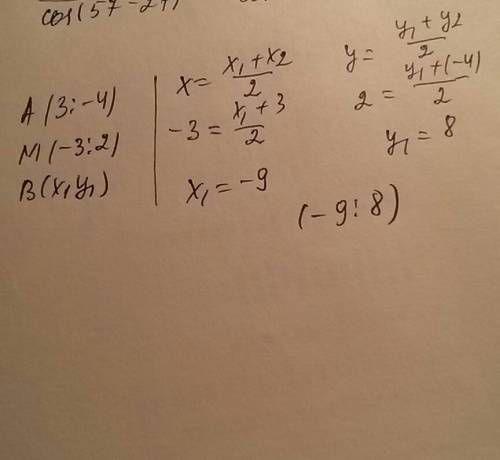 cos(57-27)
A(3;-4)
M(-3;2)
B(x₁y₁)
x = (x₁+x₂)/2
-3 = (x₁+3)/2
x₁ = -9
y = (y₁+y₂)/2
2 = (y₁+(-4))/2
y₁ = 8
(-9;8)